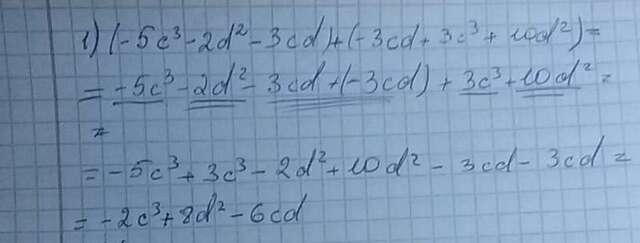 1) (-5c³ - 2d² - 3cd) + (-3cd + 3c³ + 10d²) =
= -5c³ - 2d² - 3cd + (-3cd) + 3c³ + 10d² =
=
= -5c³ + 3c³ - 2d² + 10d² - 3cd - 3cd =
= -2c³ + 8d² - 6cd